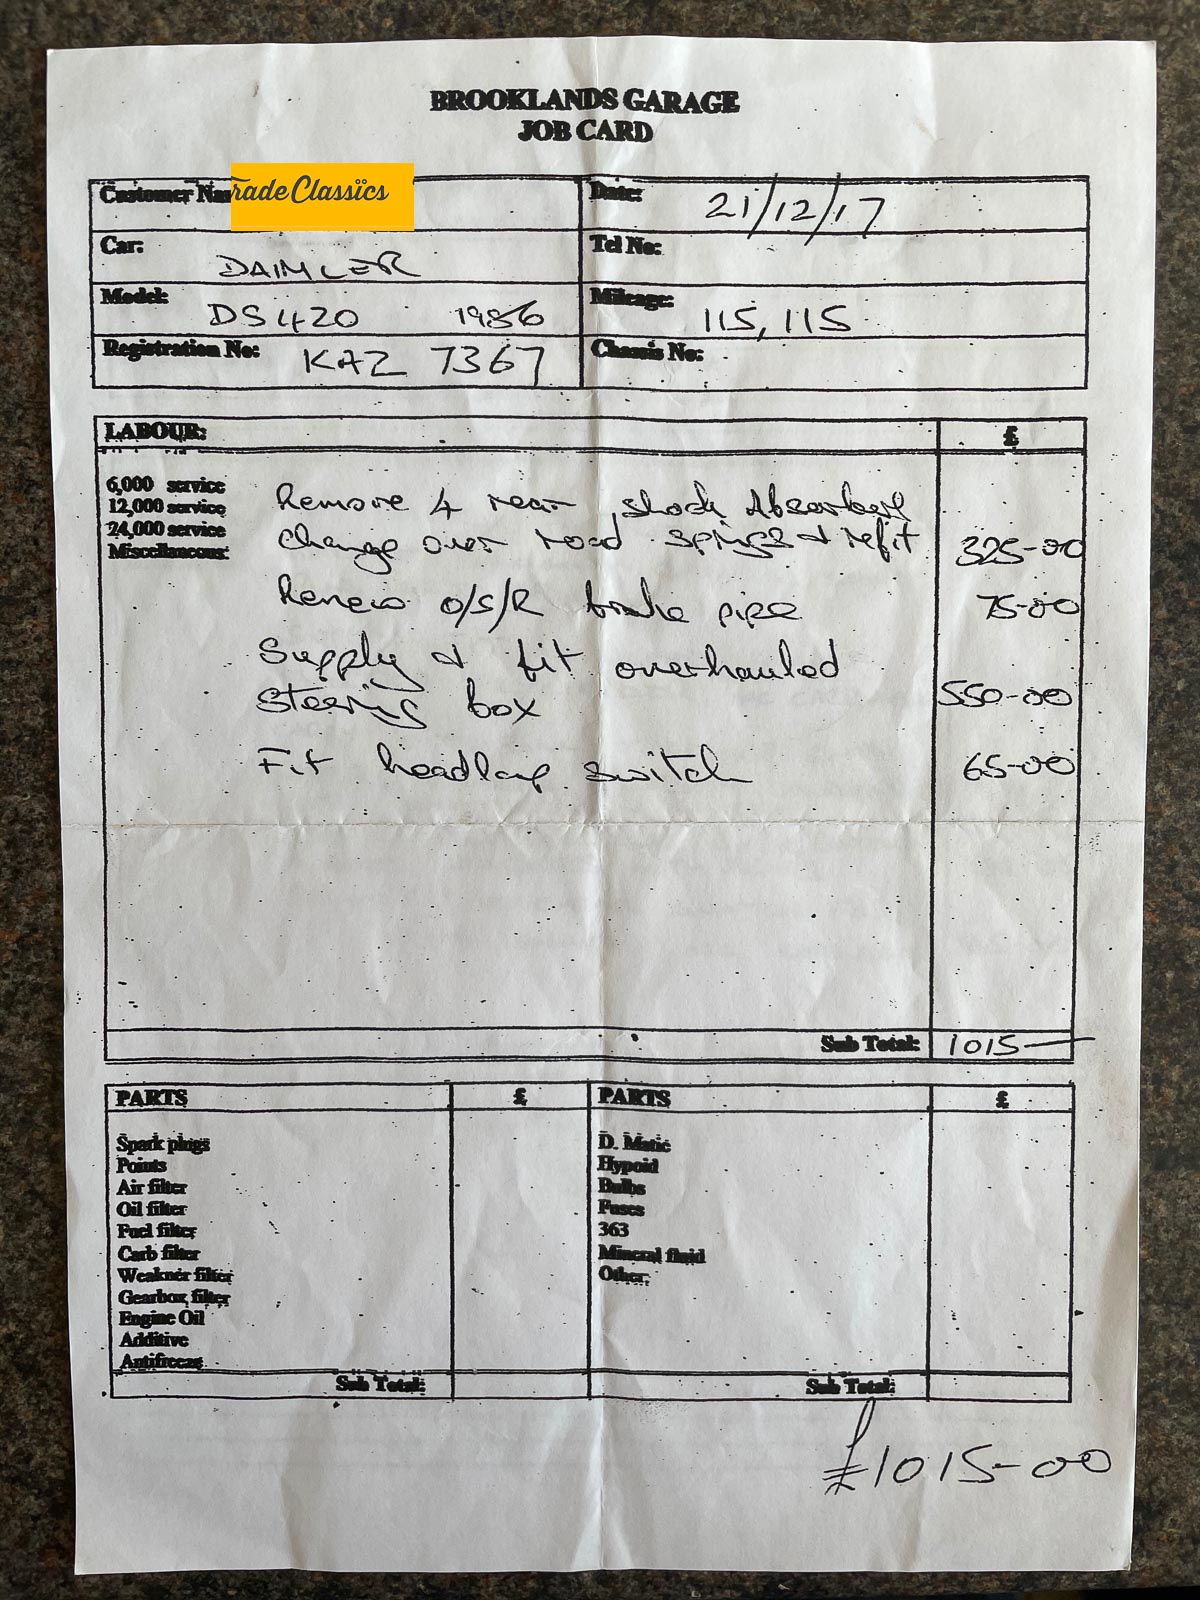 BROOKLANDS GARAGE
JOB CARD
Customer Na
radeClassics
Date: 21/12/17
Car: DAIMLER
Tel No:
Model: DS420 1986
Mileage: 115,115
Registration No: KAZ 7367
Chassis No:
LABOUR: £
6,000 service
12,000 service
24,000 service
Miscellaneous:
Remove 4 rear shock Absorbers
change over road springs & refit 325-00
Renew O/S/R brake pipe 75-00
Supply & fit overhauled
Steering box 550-00
Fit headlamp switch 65-00
Sub Total: 1015-
PARTS £ PARTS £
Spark plugs D. Matic
Points Hypoid
Air filter Bulbs
Oil filter Fuses
Fuel filter 363
Carb filter Mineral fluid
Weakner filter Other:
Gearbox filter
Engine Oil
Additive
Antifreeze
Sub Total: Sub Total:
£1015-00